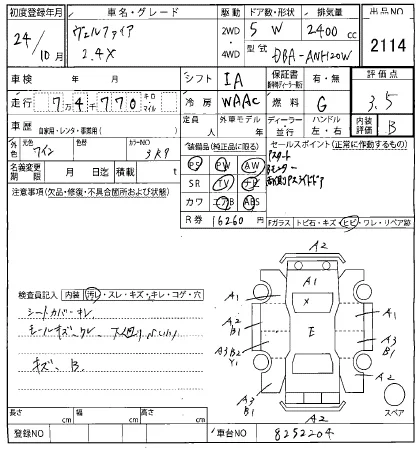 初度登録年月 車名・グレード 駆動 ドア数・形状 排気量 出品NO
24/10月 ヴェルファイア 2.4X 2WD 4WD 5 W 2400 cc 2114
型式 DBA-ANH20W
車検 年 月 シフト IA 保証書 有・無 評価点
走行 7万4千770 キロ マイル 冷房 WAAC 燃料 G 3.5
車歴 自家用・レンタ・事業用( ) 定員 人 外車モデル 年 ディーラー 並行 ハンドル 左・右 内装評価 B
外色 元色 ワイン 色替 カラーNO 3R9
装備品(純正品に限る) セールスポイント(正常に作動するもの)
名義変更期限 月 日迄 積載 t PS PW AW Pスタート
Bモニター
注意事項(欠品・修復・不具合箇所および状態) SR TV ナビ 両側Pスライドドア
カワ エアB ABS
R券 16260円 Fガラス トビ石・キズ・ヒビ・ワレ・リペア跡
A2
A1
A1 X A1
検査員記入 内装 汚レ・スレ・キズ・キレ・コゲ・穴
シートカバーキレ A2 B1 E
A3 B2 Y1 A3 B1
キズ、B
A3 B1 A2
A2 スペア
長さ cm 幅 cm 高さ cm
登録NO 車台NO 8252204